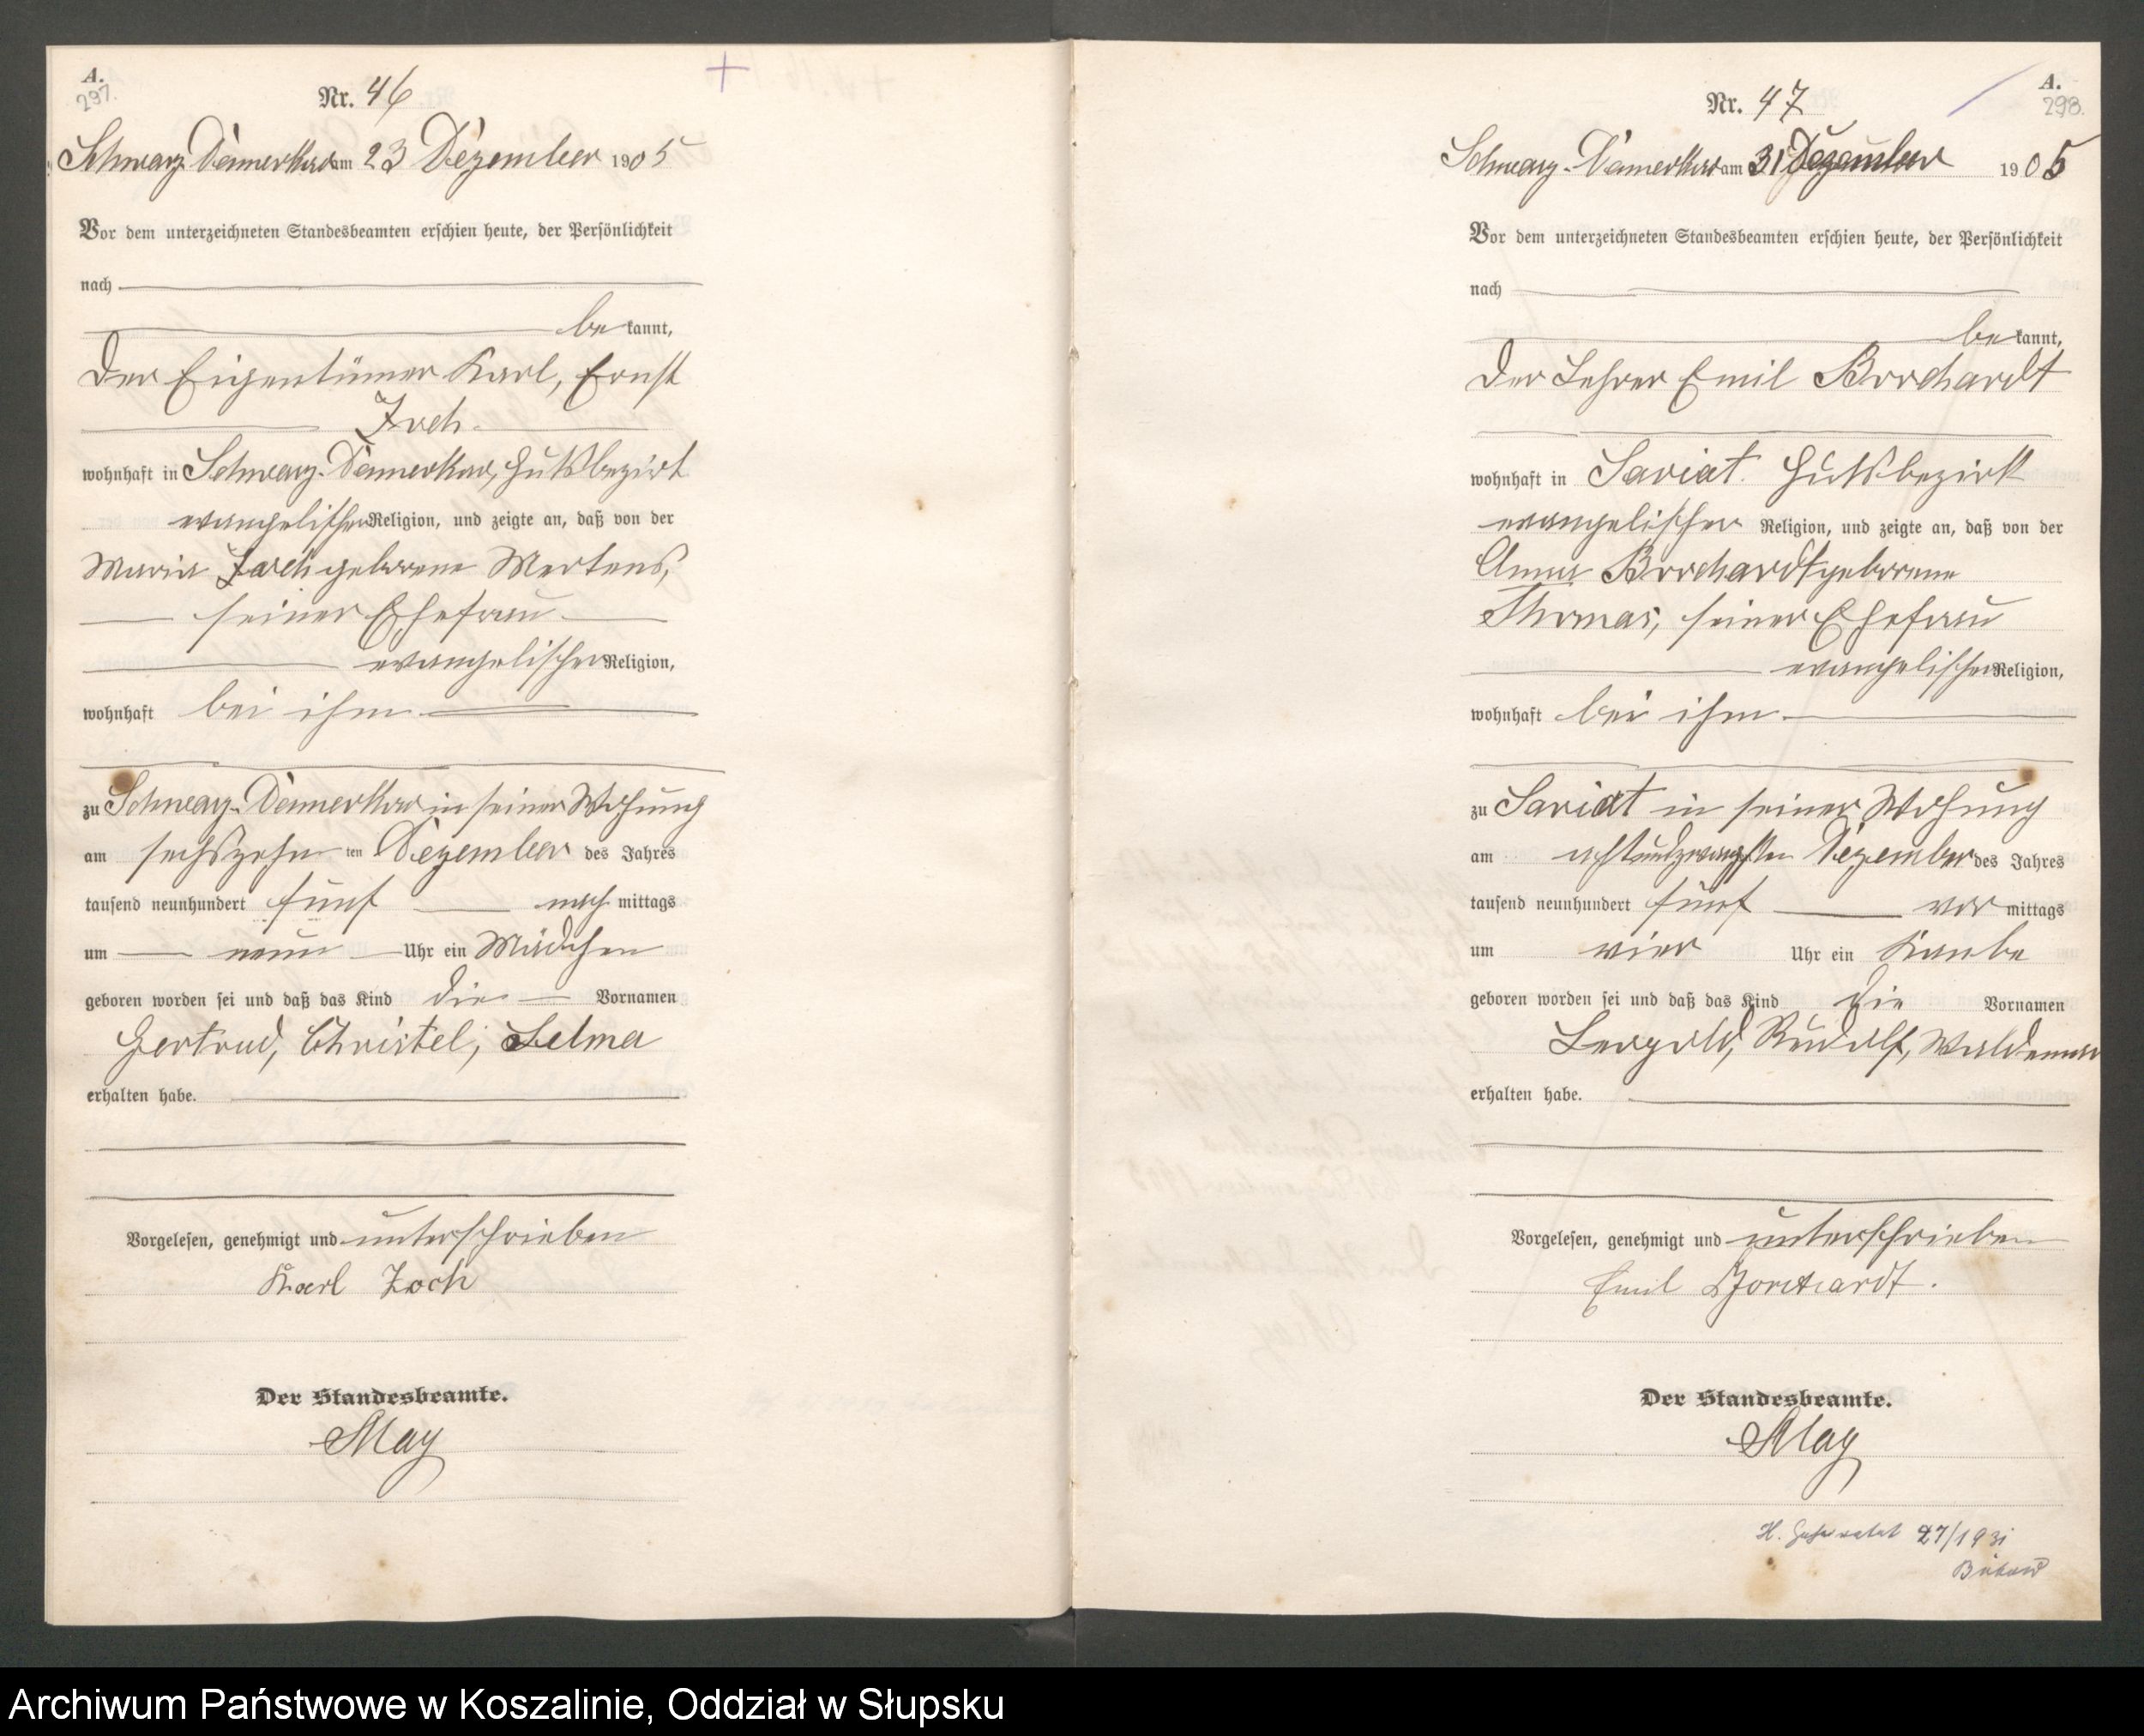 A.
297.
Nr. 46
Schwarz-Damerkow am 23 Dezember 1905
Vor dem unterzeichneten Standesbeamten erschien heute, der Persönlichkeit
nach
be kannt,
der Eigentümer Karl, Ernst
Zoch
wohnhaft in Schwarz-Damerkow, Gutsbezirk
evangelischer Religion, und zeigte an, daß von der
Maria Zoch geborene Mertens,
seiner Ehefrau
evangelischer Religion,
wohnhaft bei ihm
zu Schwarz-Damerkow in seiner Wohung
am sechszehn ten Dezember des Jahres
tausend neunhundert fünf nach mittags
um neun Uhr ein Mädchen
geboren worden sei und daß das Kind die Vornamen
Gertrud, Christel, Selma
erhalten habe.
Vorgelesen, genehmigt und unterschrieben
Karl Zoch
Der Standesbeamte.
May
A.
298.
Nr. 47
Schwarz-Damerkow am 31 Dezember 1905
Vor dem unterzeichneten Standesbeamten erschien heute, der Persönlichkeit
nach
be kannt,
der Lehrer Emil Borchardt
wohnhaft in Saviat Gutsbezirk
evangelischer Religion, und zeigte an, daß von der
Anna Borchardt geborene
Thomas, seiner Ehefrau
evangelischer Religion,
wohnhaft bei ihm
zu Saviat in seiner Wohung
am achtundzwanzigsten Dezember des Jahres
tausend neunhundert fünf vor mittags
um vier Uhr ein Knabe
geboren worden sei und daß das Kind die Vornamen
Leopold, Rudolf, Waldemar
erhalten habe.
Vorgelesen, genehmigt und unterschrieben
Emil Borchardt.
Der Standesbeamte.
May
H. geheiratet 27/1931
Bütow
Archiwum Państwowe w Koszalinie, Oddział w Słupsku